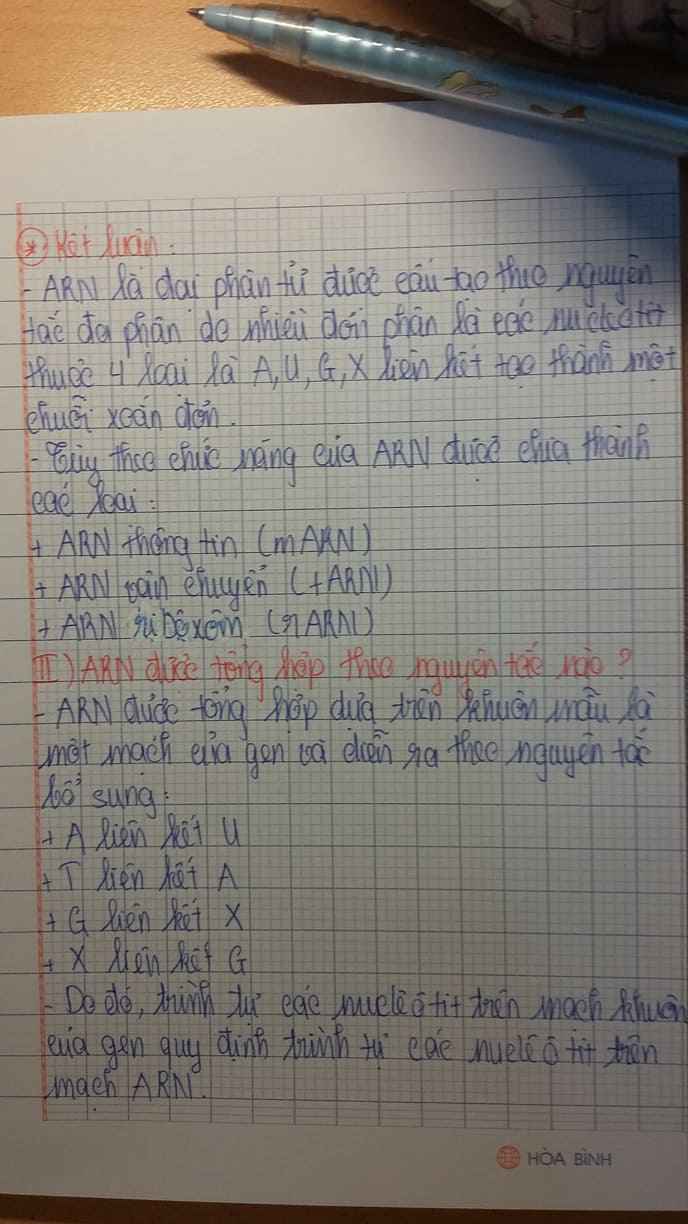 * Kết luận:
- ARN là đại phân tử được cấu tạo theo nguyên
tắc đa phân do nhiều đơn phân là các nuclêôtit
thuộc 4 loại là A, U, G, X liên kết tạo thành một
chuỗi xoắn đơn.
- Tùy theo chức năng của ARN được chia thành
các loại:
+ ARN thông tin (mARN)
+ ARN vận chuyển (tARN)
+ ARN ribôxôm (rARN)
II) ARN được tổng hợp theo nguyên tắc nào?
- ARN được tổng hợp dựa trên khuôn mẫu là
một mạch của gen và diễn ra theo nguyên tắc
bổ sung:
+ A liên kết U
+ T liên kết A
+ G liên kết X
+ X liên kết G
- Do đó, trình tự các nuclêôtit trên mạch khuôn
của gen quy định trình tự các nuclêôtit trên
mạch ARN.
HÒA BÌNH